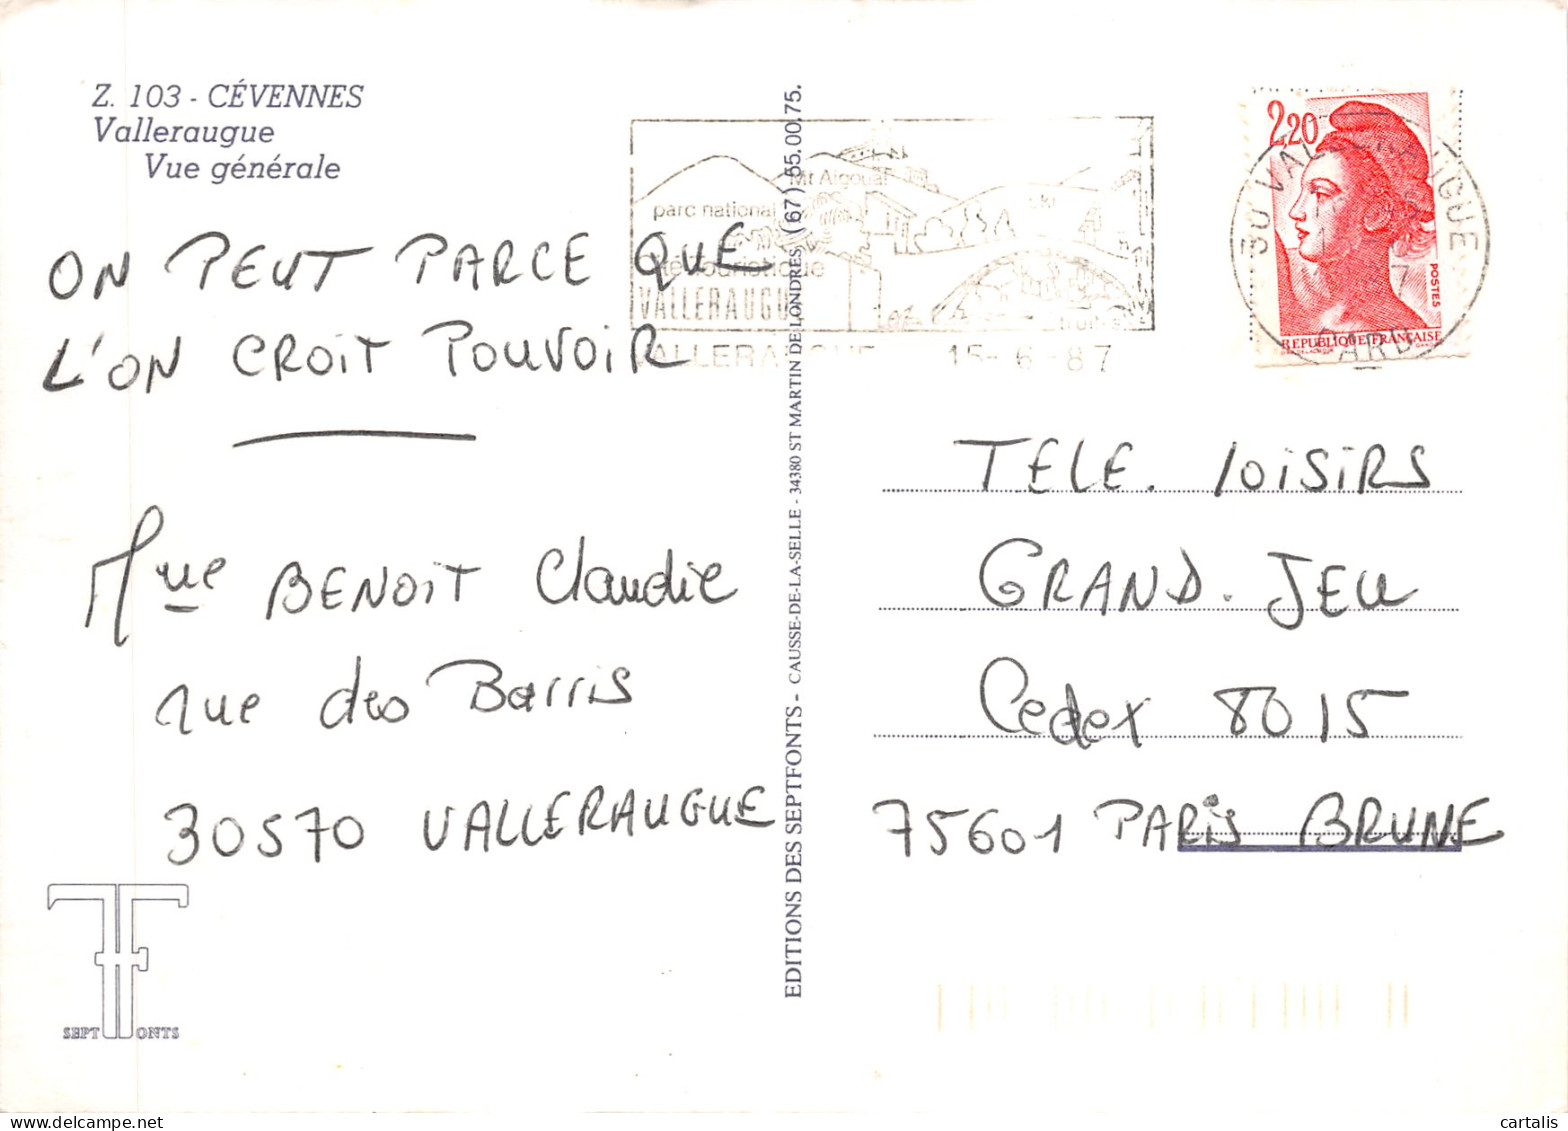 Z. 103 - CÉVENNES
Valleraugue
Vue générale
ON PEUT PARCE QUE
L'ON CROIT POUVOIR
Mme BENOIT Claudie
rue des Barris
30570 VALLERAUGUE
SEPT FONTS
EDITIONS DES SEPTFONTS - CAUSSE-DE-LA-SELLE - 34380 ST MARTIN DE LONDRES (67) 55.00.75.
Mt Aigoual
parc national
ski
touristique
VALLERAUGUE
VALLERAUGUE 15-6-87
2,20
POSTES
REPUBLIQUE FRANÇAISE
30 VALLERAUGUE
GARD
TELE. LOISIRS
GRAND. JEU
Cedex 8015
75601 PARIS BRUNE
cartalis